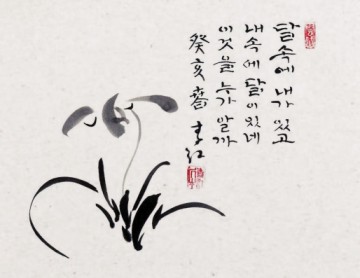 달 속에 내가 있고
내 속에 달이 있네
이것을 누가 알까
癸亥 春 李江